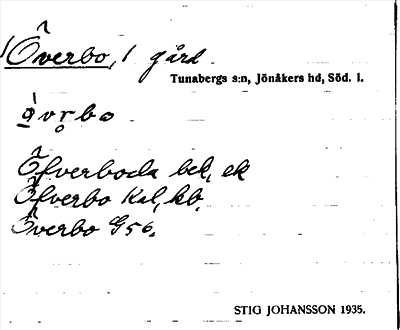 Överbo, 1 gård.
Tunabergs s:n, Jönåkers hd, Söd. l.
Öfverboda bel, ek
Öfverbo Kal, kb,
Överbo G56.
STIG JOHANSSON 1935.